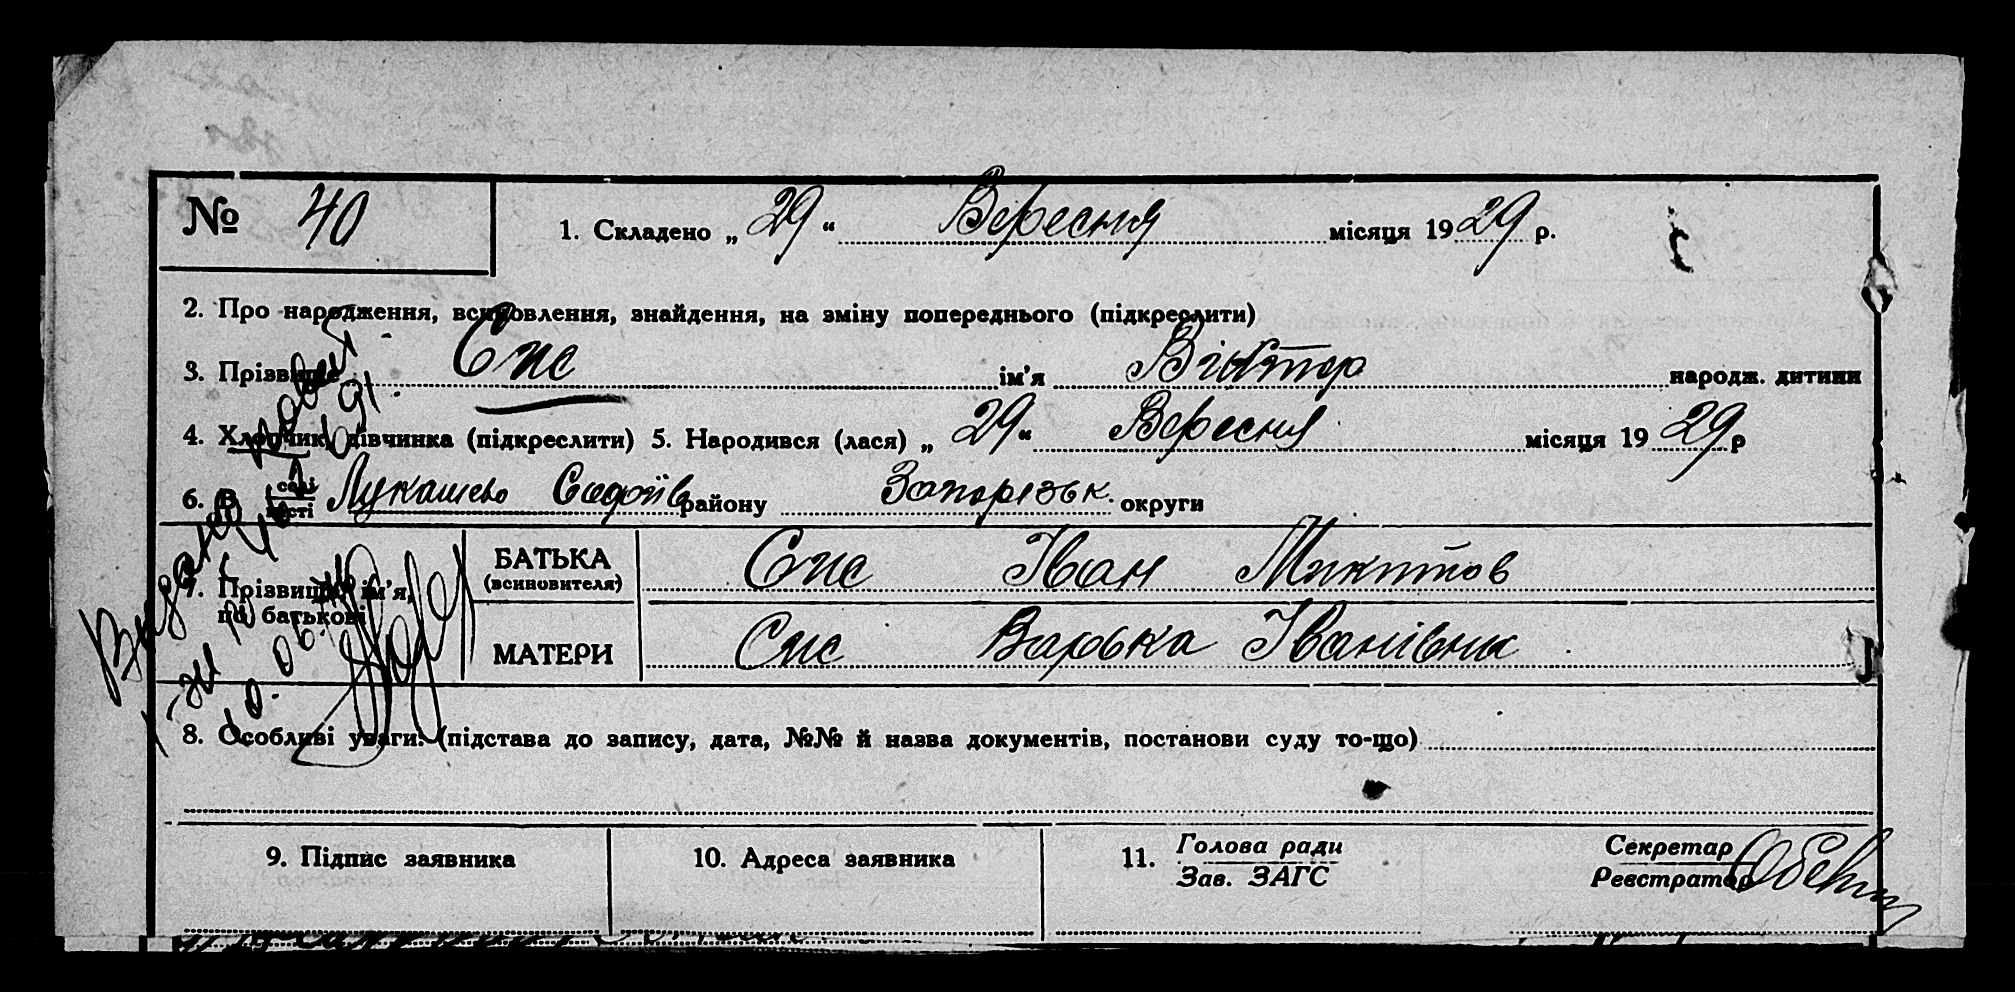 № 40
1. Складено „ 29 “ Вересня місяця 1929 р.
2. Про народження, всиновлення, знайдення, на зміну попереднього (підкреслити)
3. Прізвище Спс ім'я Віктор народж. дитини
4. Хлопчик, дівчинка (підкреслити) 5. Народився (лася) „ 29 “ Вересня місяця 1929 р
6. В селі місті Лукашево Софіїв району Запорізьк. округи
7. Прізвище, ім'я, по батькові
БАТЬКА (всиновителя) Спс Іван Микитов
МАТЕРИ Спс Варька Іванівна
8. Особливі уваги: (підстава до запису, дата, №№ й назва документів, постанови суду то-що)
9. Підпис заявника
10. Адреса заявника
11. Голова ради Зав. ЗАГС
Секретар Реєстратор